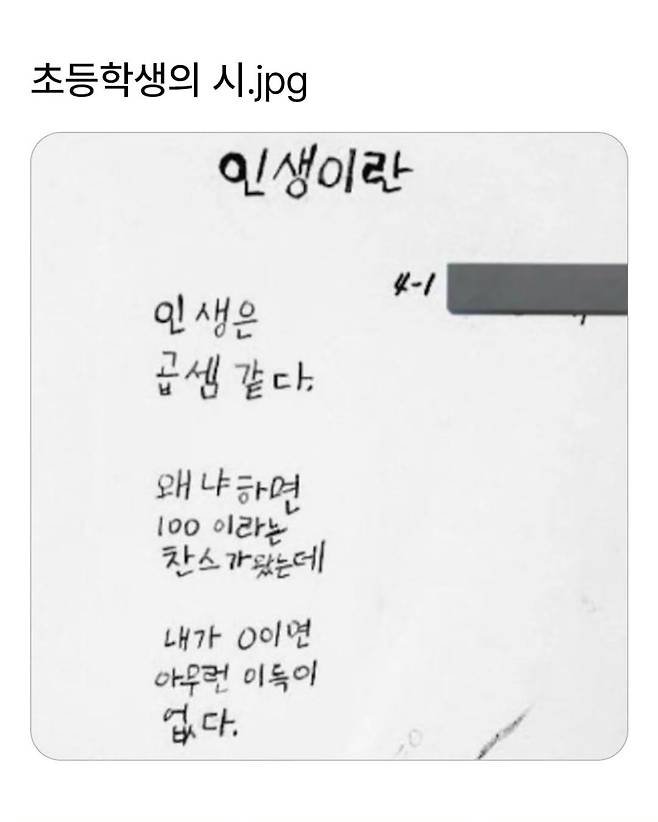 초등학생의 시.jpg
인생이란
4-1
인생은
곱셈 같다.
왜냐하면
100 이라는
찬스가 왔는데
내가 0이면
아무런 이득이
없다.